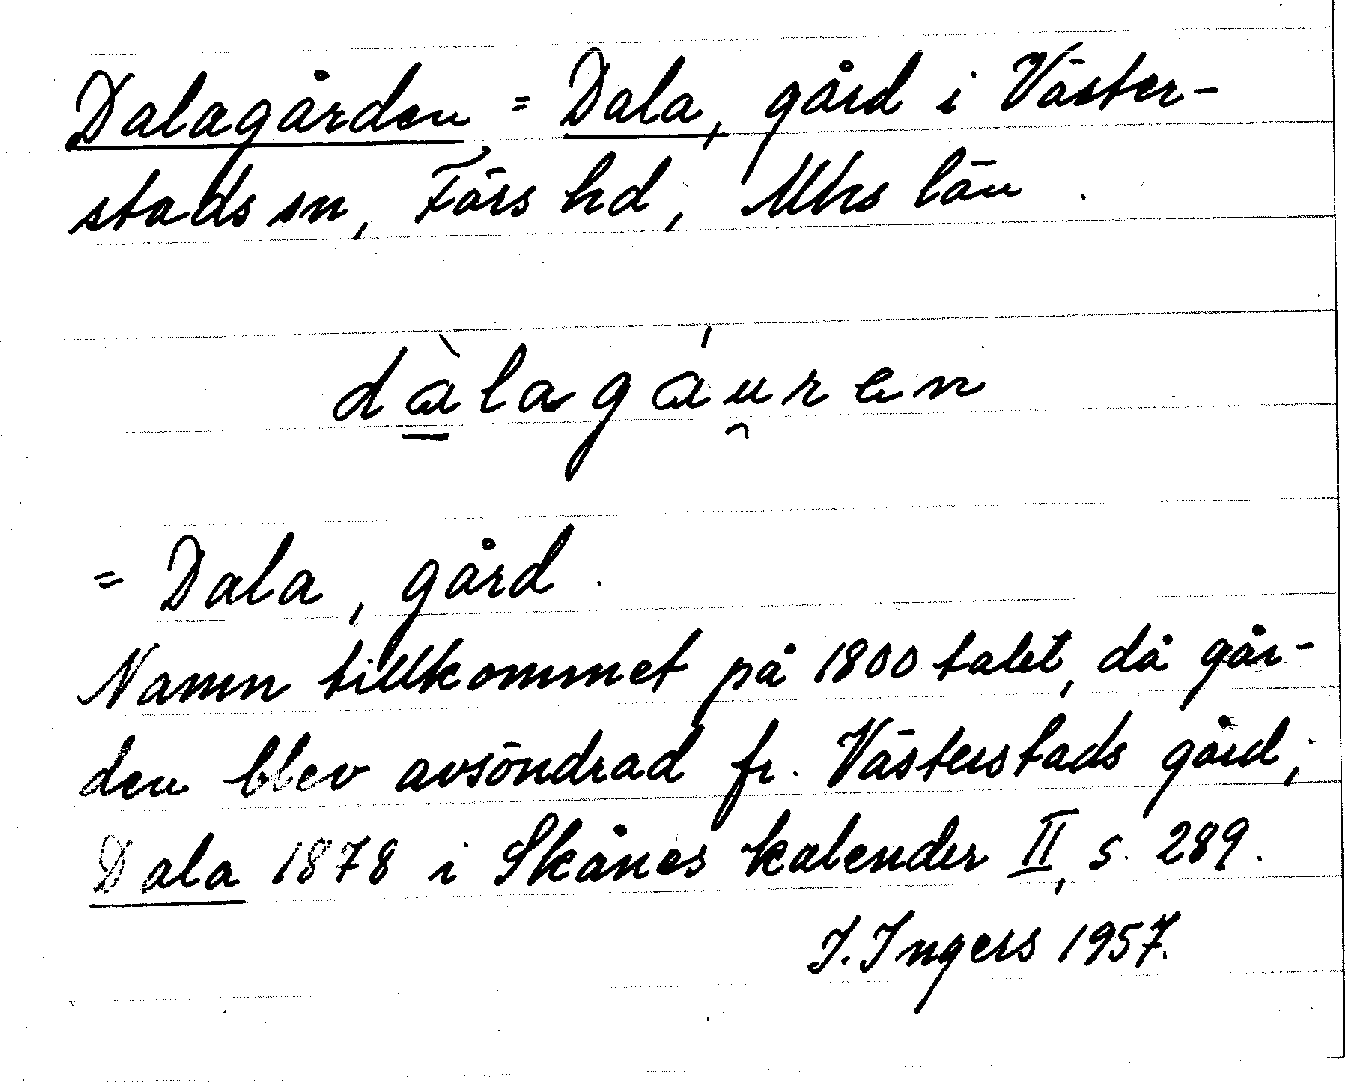 Dalagården = Dala, gård i Väster-
stads sn, Färs hd, Mhs län.
dàlagáu̯ren
= Dala, gård.
Namn tillkommet på 1800 talet, då går-
den blev avsöndrad fr. Västerstads gård;
Dala 1878 i Skånes kalender II, s. 289.
I. Ingers 1957.